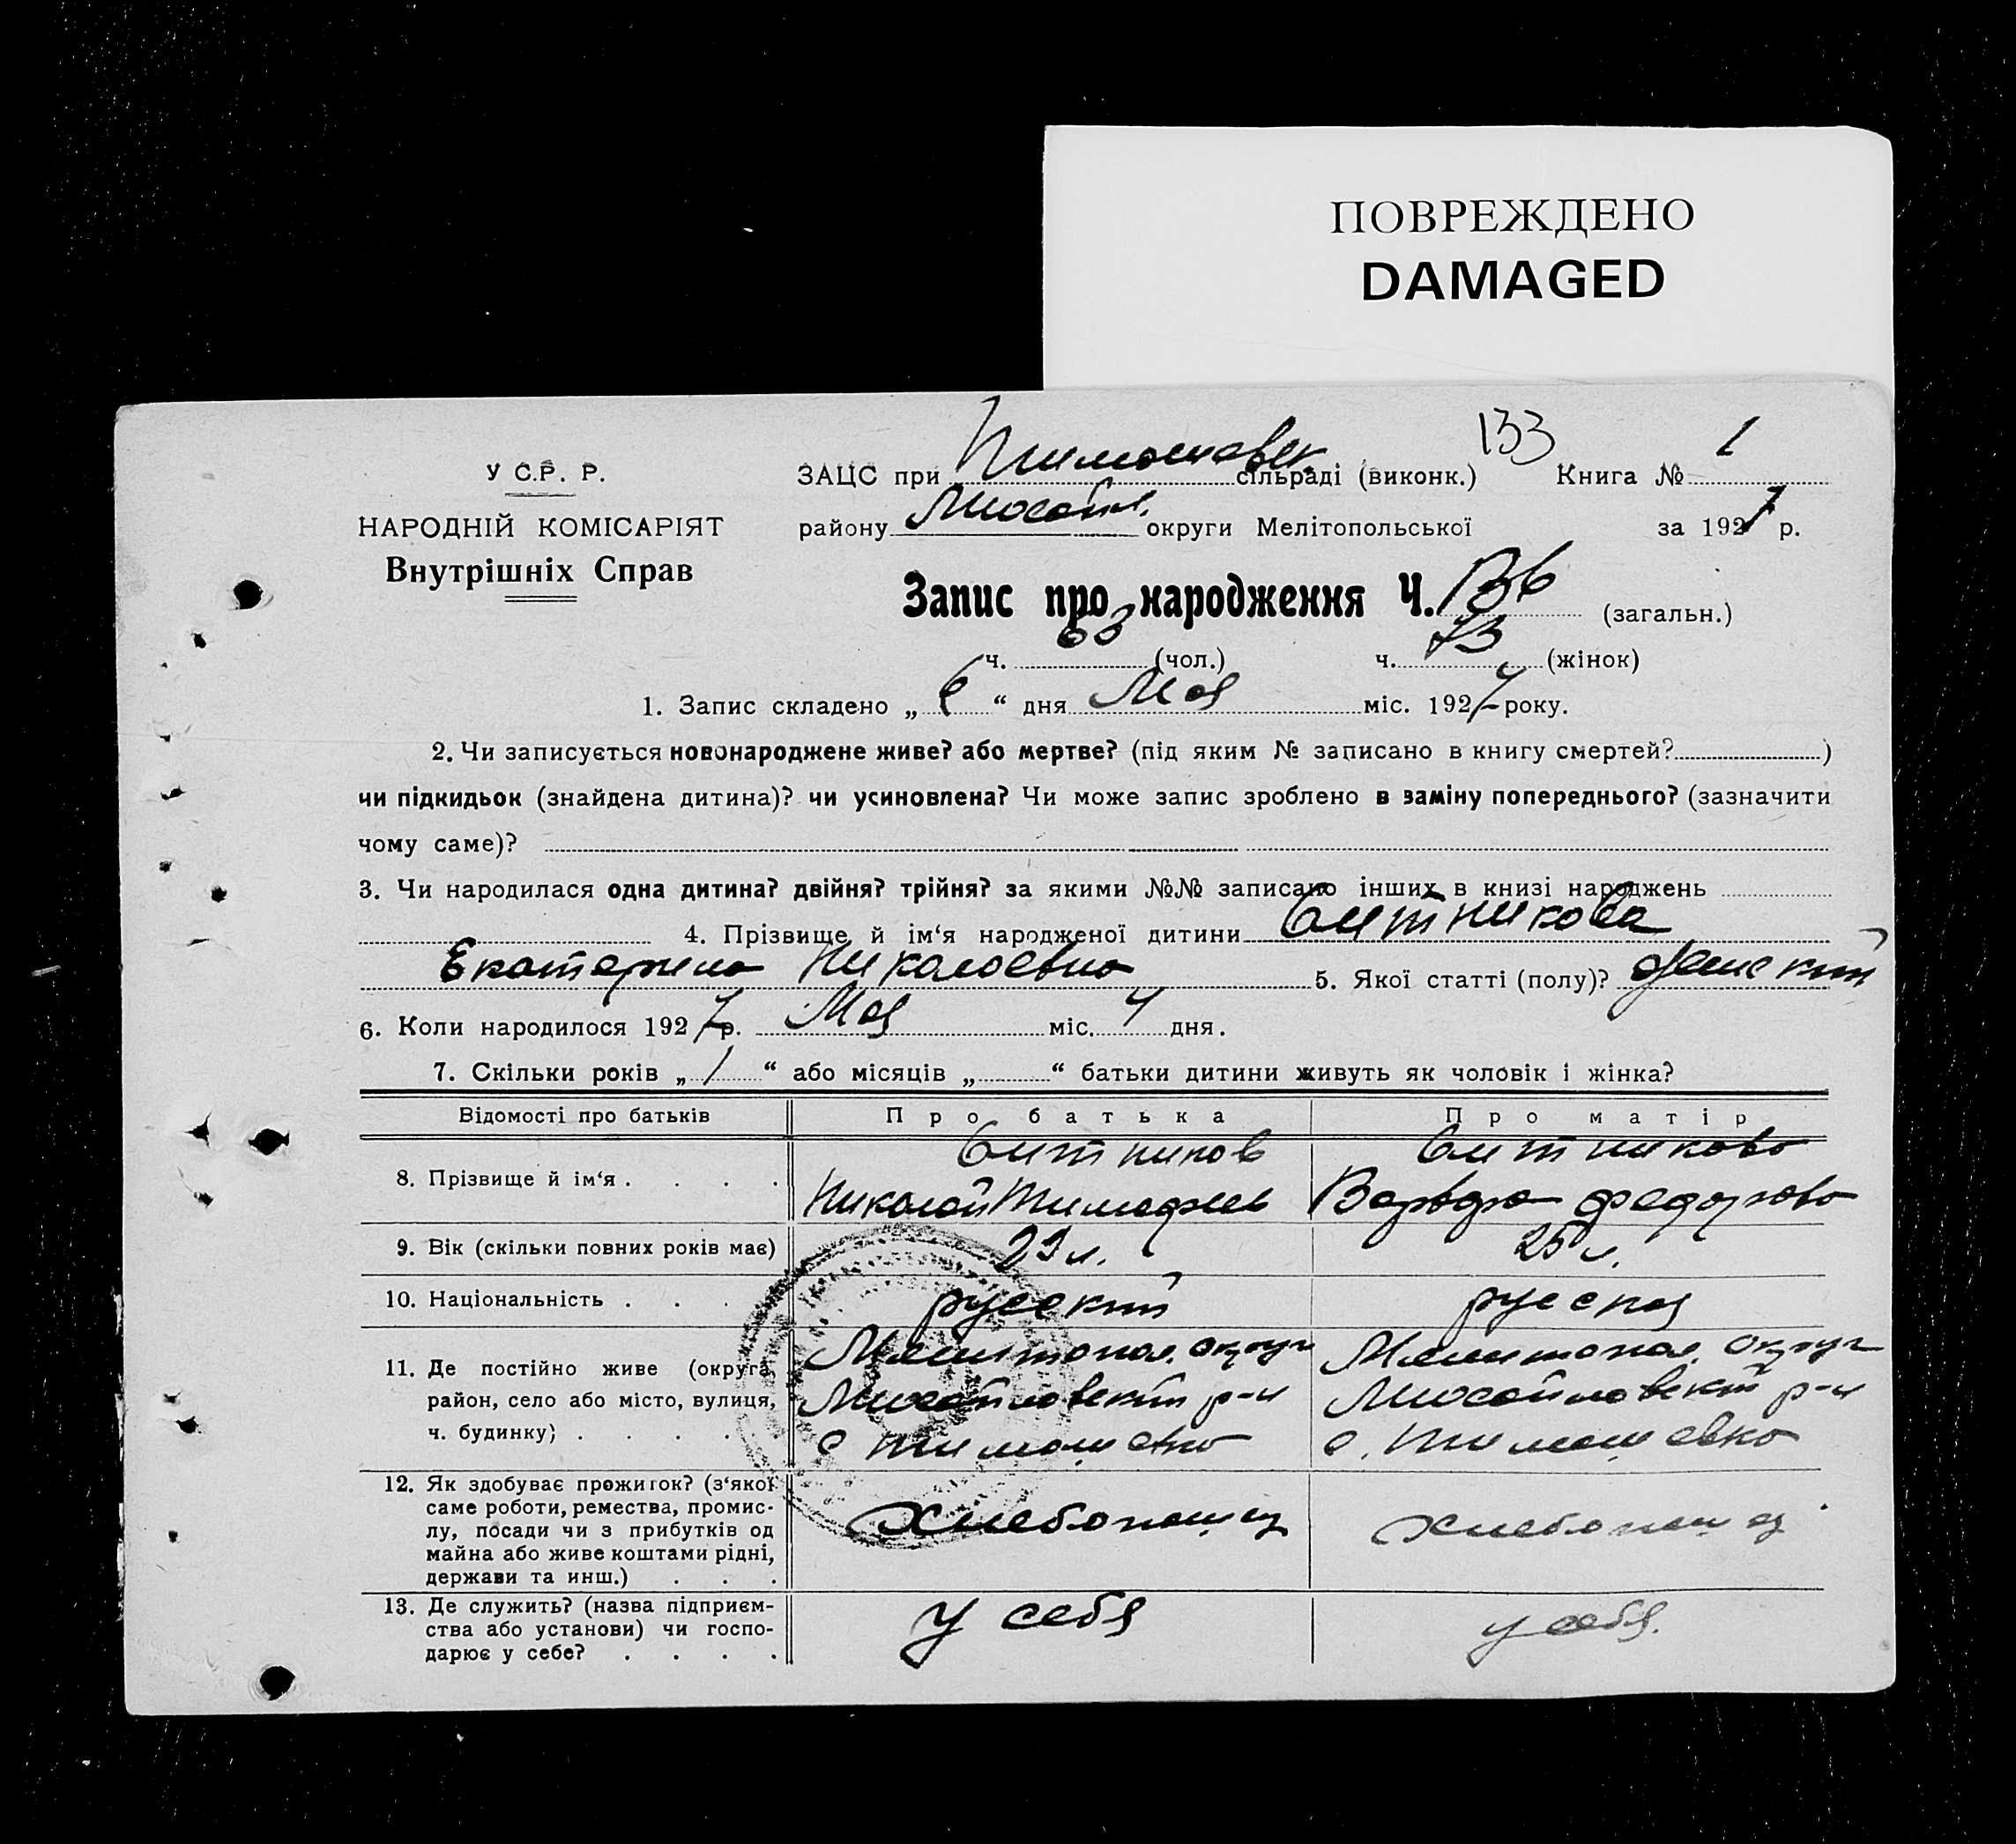 ПОВРЕЖДЕНО
DAMAGED
133
У С.Р. Р.
НАРОДНІЙ КОМІСАРІЯТ
Внутрішніх Справ
ЗАЦС при Тимошевск. сільраді (виконк.) Книга № 1
району Михайл. округи Мелітопольської за 1927 р.
Запис про народження Ч. 136 (загальн.)
ч. 63 (чол.) ч. 73 (жінок)
1. Запис складено „ 6 “ дня Мая міс. 1927 року.
2. Чи записується новонароджене живе? або мертве? (під яким № записано в книгу смертей? )
чи підкидьок (знайдена дитина)? чи усиновлена? Чи може запис зроблено в заміну попереднього? (зазначити
чому саме)?
3. Чи народилася одна дитина? двійня? трійня? за якими №№ записано інших в книзі народжень
4. Прізвище й ім‘я народженої дитини Ситникова
Екатерина Николаевна 5. Якої статті (полу)? женский
6. Коли народилося 1927 р. Мая міс. 4 дня.
7. Скільки років „ 1 “ або місяців „ “ батьки дитини живуть як чоловік і жінка?
Відомості про батьків Про батька Про матір
8. Прізвище й ім‘я . . . . Ситников Ситникова
Николай Тимофеев Варвара Федорова
9. Вік (скільки повних років має) 23 л. 25 л.
10. Національність . . . русский русская
11. Де постійно живе (округа, Мелитопол. округ Мелитопол. округ
район, село або місто, вулиця, Михайловский р-н Михайловский р-н
ч. будинку) . . . . с Тимошевка с. Тимошевка
12. Як здобуває прожиток? (з‘якої
саме роботи, ремества, промис-
лу, посади чи з прибутків од Хлебопашец хлебопашец
майна або живе коштами рідні,
держави та инш.) . . .
13. Де служить? (назва підприєм-
ства або установи) чи госпо- у себя у себя.
дарює у себе? . . . .